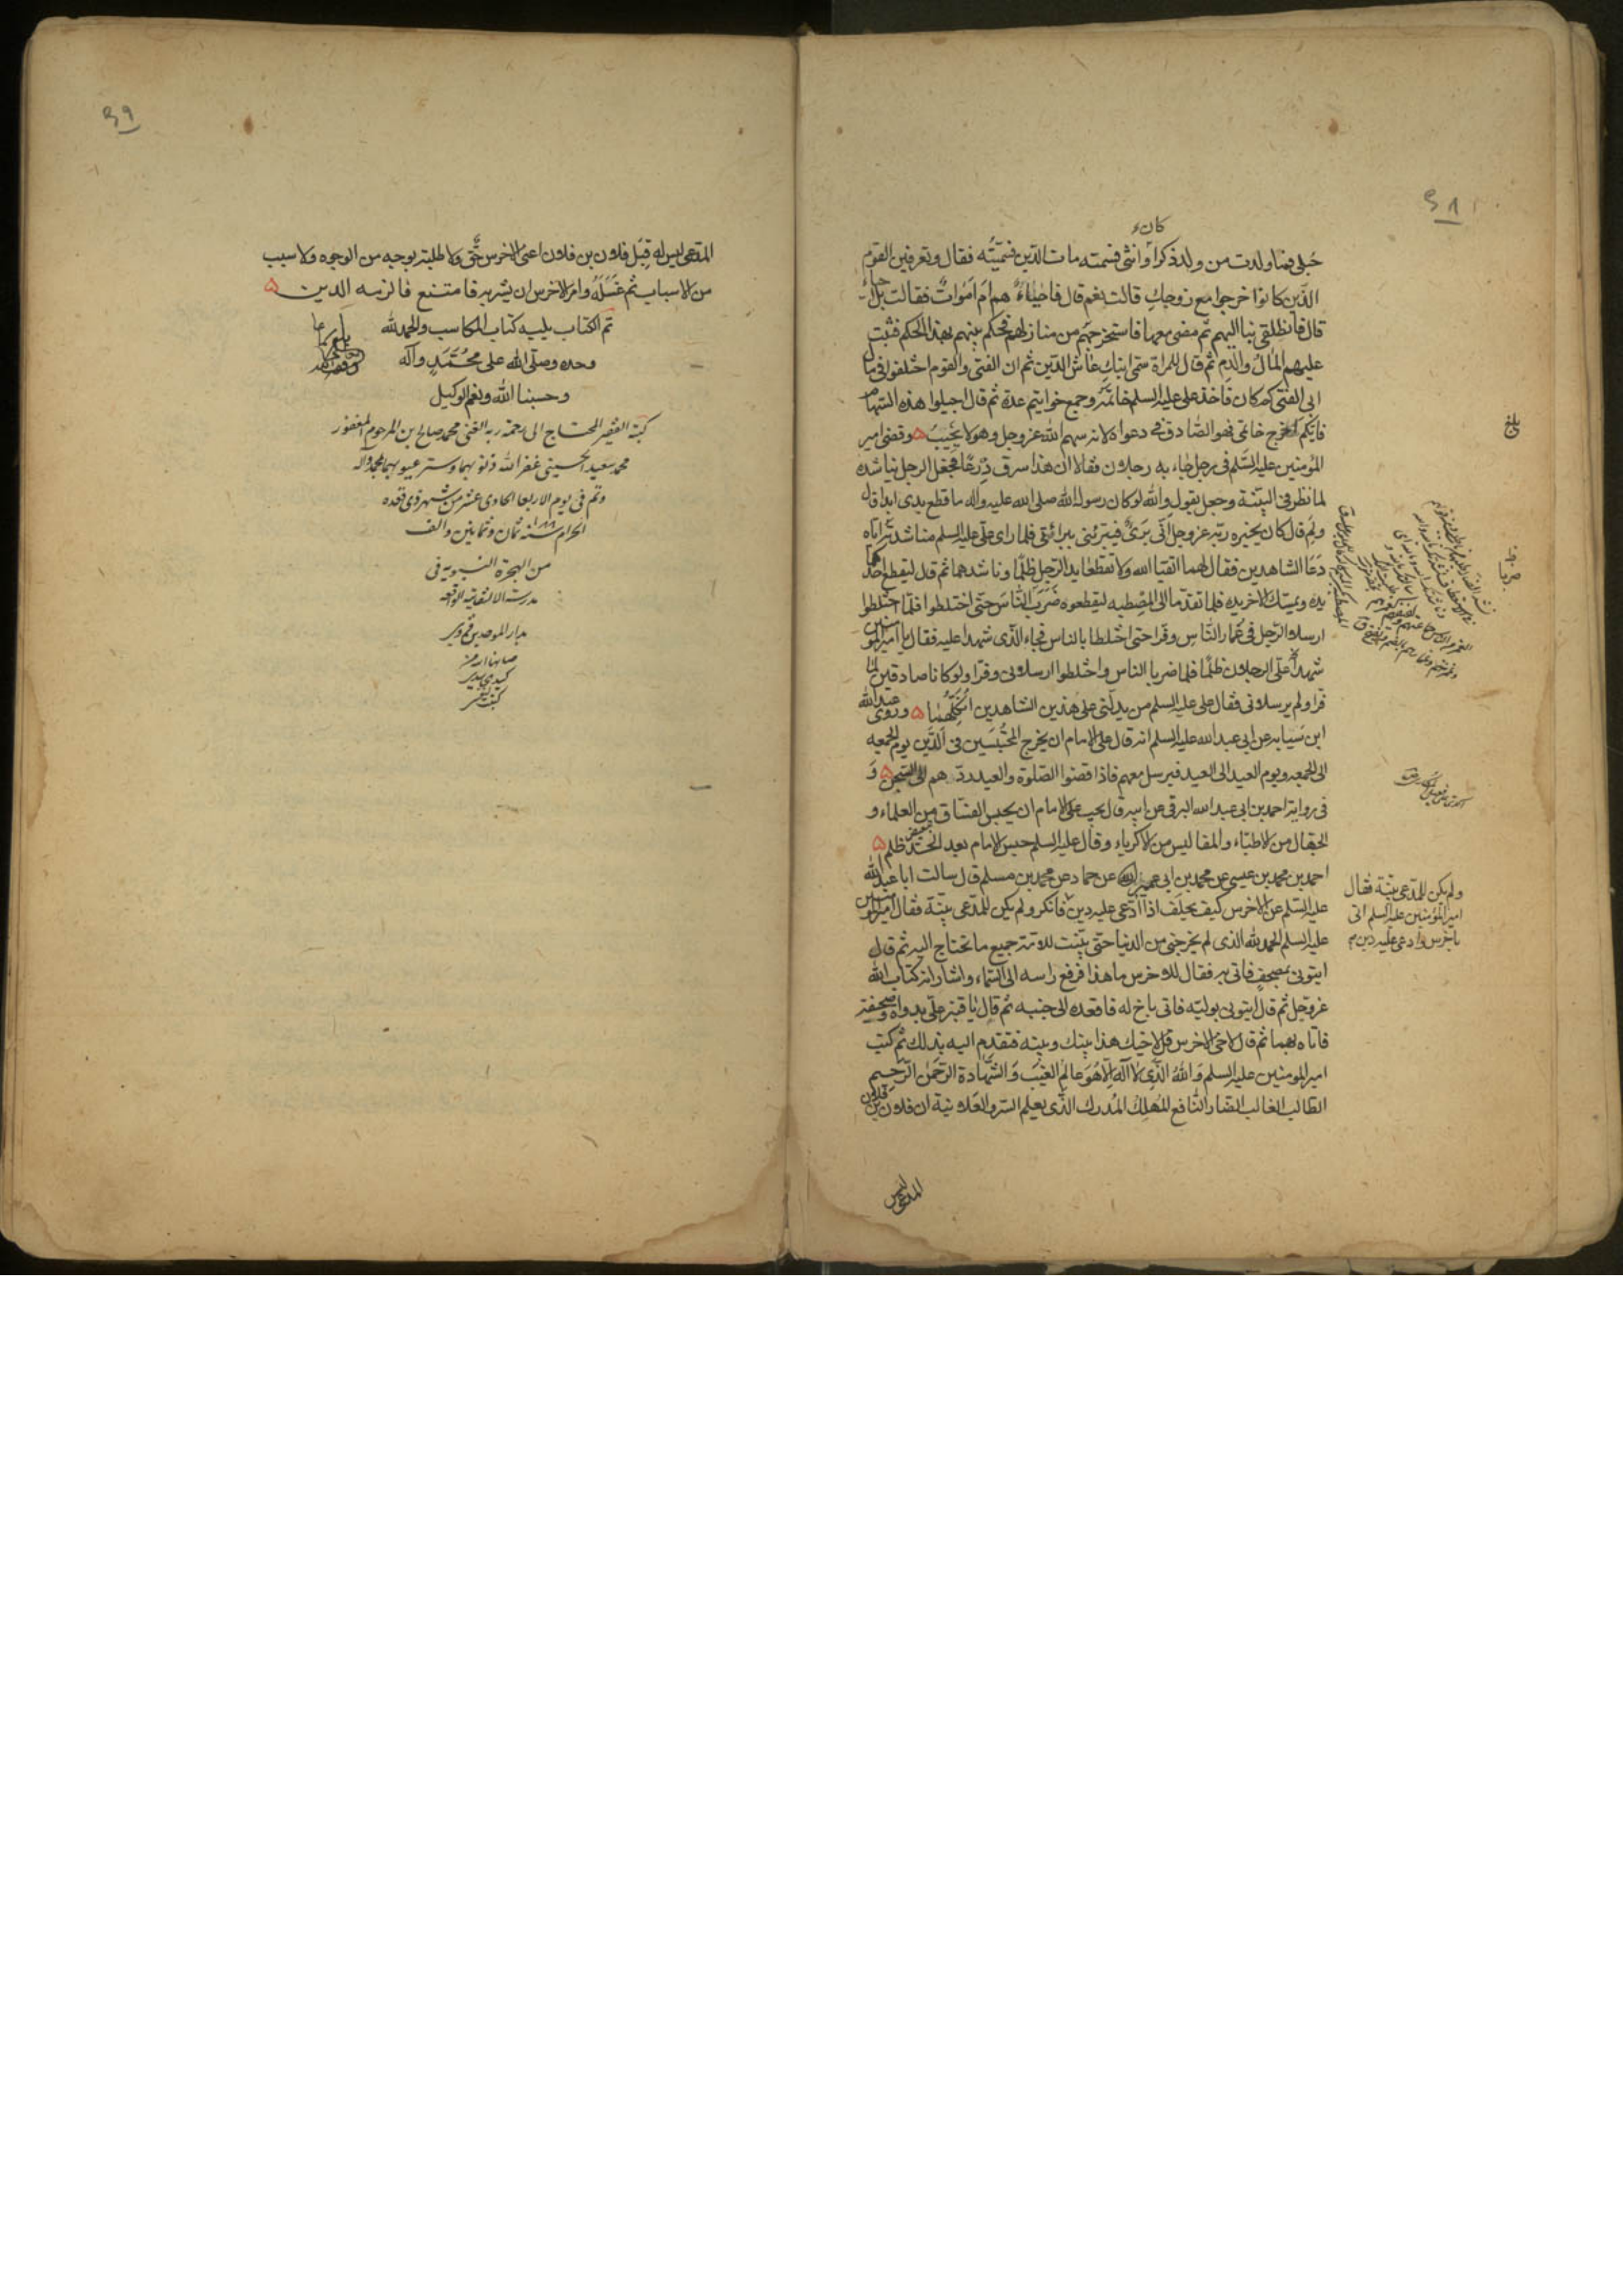 كان
حبلى فما ولدت من ولد ذكرا وانثى فسمته مات الدين فسميته فقال وتعرفين القوم
الذين كانوا خرجوا مع زوجك قالت نعم قال فاحياء هم ام اموات فقالت بل احياء
قال فانطلقي بنا اليهم ثم مضى معها فاستخرجهم من منازلهم فحكم بينهم بهذا الحكم فثبت
عليهم المال والدم ثم قال للمراة سمى ابنك عاش الدين ثم ان الفتى والقوم اختلفوا في مال
ابي الفتى كم كان فاخذ على عليه السلم خاتمه وجمع خواتيم عدة ثم قال اجيلوا هذه السهام
فايكم اخرج خاتمي فهو الصادق في دعواه لانه سهم الله عز وجل وهو لا يخيب وقضى امير
المؤمنين عليه السلم في رجل جاء به رجلان فقالا ان هذا سرق درعا فجعل الرجل يناشده
لما نظر في البينة وجعل يقول والله لو كان رسول الله صلى الله عليه واله ما قطع يدي ابدا قال
ولم قال كان يخبره ربه عز وجل اني بري فيبرئني ببرائتي فلما راى على عليه السلم مناشدته اياه
دعا الشاهدين فقال لهما اتقيا الله ولا تقطعا يد الرجل ظلما وناشدهما ثم قال ليقطع احدكما
يده ويمسك الاخر يده فلما تقدما الى المصطبه ليقطعوه ضرب الناس حتى اختلطوا فلما اختلطوا
ارسلا الرجل في غمار الناس وفرا حتى اختلطا بالناس فجاء الذي شهدا عليه فقال يا امير المؤمنين
شهد علي الرجلان ظلما فلما ضربا الناس واختلطوا ارسلاني وفرا ولو كانا صادقين لما
فرا ولم يرسلاني فقال على عليه السلم من يدلني على هذين الشاهدين انكلهما وروى عبد الله
ابن سيابه عن ابي عبد الله عليه السلم انه قال على الامام ان يخرج المحبسين في الدين يوم الجمعه
الى الجمعه ويوم العيد الى العيد فيرسل معهم فاذا قضوا الصلوة والعيد ردهم الى السجن و
في رواية احمد بن ابي عبد الله البرقي عن ابيه قال يجب على الامام ان يحبس الفساق من العلماء و
الجهال من الاطباء والمفاليس من الاكرياء وقال عليه السلم حبس الامام بعد الحد ظلم
احمد بن محمد بن عيسى عن محمد بن ابي عمير عن حماد عن محمد بن مسلم قال سالت ابا عبد الله
عليه السلم عن الاخرس كيف يحلف اذا ادعي عليه دين فانكر ولم يكن للمدعى بينة فقال امير المؤمنين
عليه السلم الحمد لله الذي لم يخرجني من الدنيا حتى بينت للامة جميع ما تحتاج اليه ثم قال
ايتوني بمصحف فاتي به فقال للاخرس ما هذا فرفع راسه الى السماء واشار انه كتاب الله
عز وجل ثم قال ايتوني بوليه فاتي باخ له فاقعده الى جنبه ثم قال يا قنبر علي بدواة وصحيفة
فاتاه بهما ثم قال لاخي الاخرس قل لاخيك هذا بينك وبينه فتقدم اليه بذلك ثم كتب
امير المومنين عليه السلم والله الذي لا اله الا هو عالم الغيب والشهادة الرحمن الرحيم
الطالب الغالب الضار النافع المهلك المدرك الذي يعلم السر والعلانية ان فلان بن فلان
المدعى ليس
بلغ
ولم يكن للمدعى بينة فقال
امير المؤمنين عليه السلم اتى
باخرس وادعى عليه دين
المدعى ليس له قبل فلان بن فلان اعنى الاخرس حق ولا طلبة بوجه من الوجوه ولا سبب
من الاسباب ثم غسله وامر الاخرس ان يشربه فامتنع فالزمه الدين
تم الكتاب يليه كتاب المكاسب والحمد لله
وحده وصلى الله على محمد وآله
وحسبنا الله ونعم الوكيل
كتبه الفقير المحتاج الى رحمة ربه الغني محمد صالح ابن المرحوم المغفور
محمد سعيد الحسيني غفر الله ذنوبهما وستر عيوبهما بمحمد وآله
وتم في يوم الاربعا الحادي عشر من شهر ذي قعده
الحرام سنه ١٠٨٨ ثمان وثمانين والف
من الهجرة النبوية في
مدرسة الواقعه
بدار الموحدين قزوين